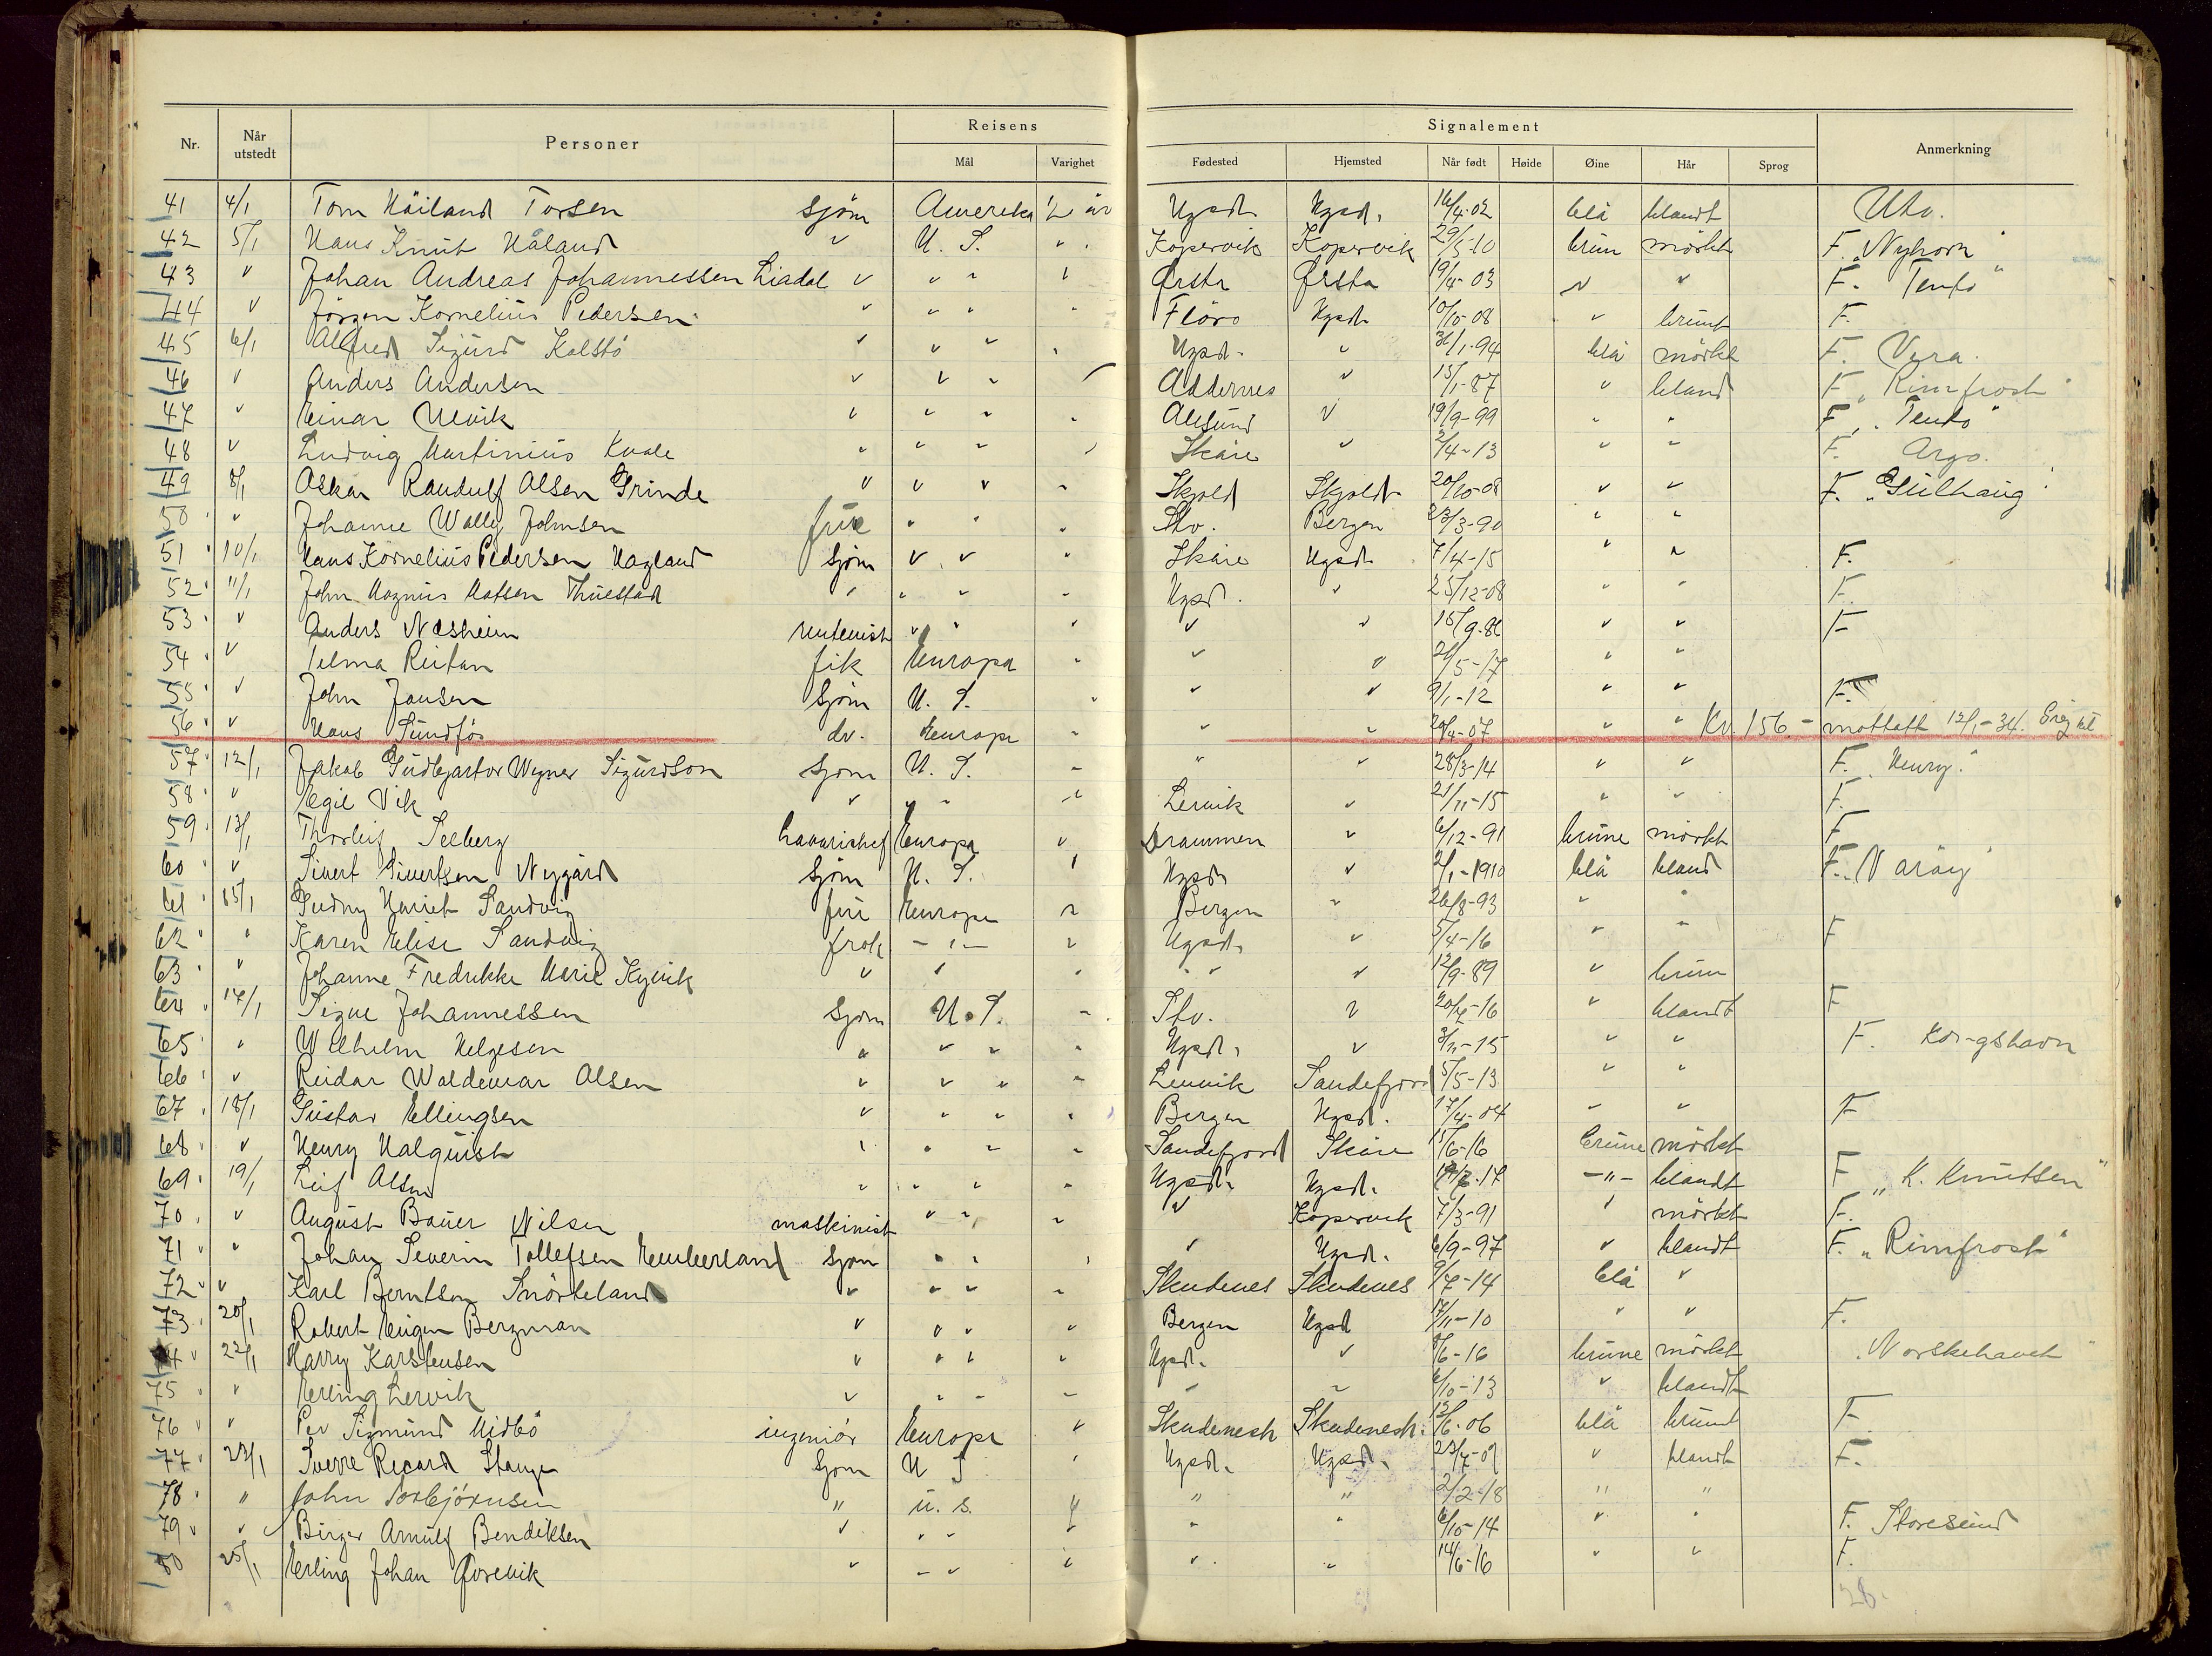 Reisens Signalement
Nr. Når utstedt Personer Mål Varighet Fødested Hjemsted Når født Høide Øine Hår Sprog Anmerkning
41 4/1 Tom Håiland Torsen sjøm Amerika ½ år Hgsd. Hgsd. 16/4-02 blå blandt Utv.
42 5/1 Hans Knut Håland " U. S. " Kopervik Kopervik 29/5-10 brun mörkt F. "Nyhorn"
43 " Johan Andreas Johannessen Liadal " " " " Ørsta Ørsta 19/4-03 " " F. Tento"
44 " Jörgen Kornelius Pedersen " " " " Florö Hgsd. 10/10-08 " brunt F.
45 6/1 Alfred Sigurd Kolstö " " " " Hgsd. " 31/1-94 blå mörkt F. Vera.
46 " Anders Andersen " " " Oddernes " 15/1-87 " bland F. "Rimfrost"
47 " Einar Ulvik " " " " Ålesund " 19/9-99 " " F. "Tento"
48 " Ludvig Martinius Kvale " " " " Skåre " 2/4-13 " " F. Argo.
49 8/1 Oskar Randulf Olsen Grinde " " " " Skjold Skjold 20/10-08 " " F. "Gulhaug"
50 " Johanne Wally Johnsen frue " " " Stv. Bergen 23/3-90 " "
51 10/1 Hans Kornelius Pedersen Hagland sjøm " " " Skåre Hgsd. 7/4-15 " " F.
52 11/1 John Magnus Matsen Thuestad " " " " Hgsd. " 25/12-08 " " F.
53 " Anders Nesheim " " " " " " " F
54 " Telma Reitan " Europa " " " 21/5-17 " "
55 " John Jansen sjøm U. S. " " " 9/1-12 " " F.
56 " Hans Sundfør dv. Europa " " " 20/4-07 " " Kv. 156.- mottatt 12/1-34.
57 12/1 Jakob Wegner Sigurdson sjøm U. S. " " " 28/3-14 " " F. "Henry"
58 " Egil Vik " " " " Lervik " 21/11-15 " " F.
59 13/1 Thorleif Selberg havarichef Europa " Drammen " 6/12-91 brune mörkt F
60 " Sivert Sivertsen Nygård sjøm U. S. " Hgsd. " 2/1-1910 blå bland F. "Varöy"
61 15/1 Gudny Hariet Sandvig frü Europa " Bergen " 26/8-93 " "
62 " Karen Elise Sandvig frøk -"- " Hgsd. " 5/4-16 " " F
63 " Johanne Fredrikke Marie Kyvik " " " " " " 12/9-89 " brun
64 14/1 Signe Johannessen sjøm U. S. " Stv. " 20/7-16 " blandt F
65 " Wilhelm Helgesen " " " " Hgsd. " 3/11-15 " " F. Kongshavn
66 " Reidar Waldemar Olsen " " " " Lenvik Sandefjord 5/5-13 " "
67 18/1 Gustav Ellingsen " " " " Bergen Hgsd. 17/4-04 " " F
68 " Henry Halquist " " " " Sandefjord Skåre 15/6-16 brune mörkt
69 19/1 Leif Olsen " " " " Hgsd. Hgsd. -"- blandt F "K. Knutsen"
70 " August Bauer Nilsen maskinist " " " " Kopervik 7/3-91 " mörkt F.
71 " Johan Severin Tollefsen Emberland sjøm " " " " Hgsd. 6/9-97 " blandt F. "Rimfrost"
72 " Karl Berntsen Snörteland " " " " Skudenes Skudenes 9/7-14 blå "
73 20/1 Robert Eugen Bergman " " " " Bergen Hgsd 17/11-10 " " F.
74 22/1 Harry Karstensen " " " " Hgsd. " 8/6-16 brune mörkt "Norskehavet"
75 " Erling Lervik " " " " " " 6/10-13 " blandt
76 " Per Sigmund Midbö ingeniör Europa " Skudenesh Skudenesh. 12/6-06 blå brunt F.
77 23/1 Sverre Recard Stange sjøm U S " Hgsd. Hgsd. 23/7-09 " blandt F.
78 " John Torbjörnsen " u. s. " " " 2/2-18 " "
79 " Birger Arnulf Bendiksen " " " " " " 6/10-14 " " F. Storesund
80 25/1 Erling Johan Qvrevik " " " " " " 14/6-16 " " F.
28.